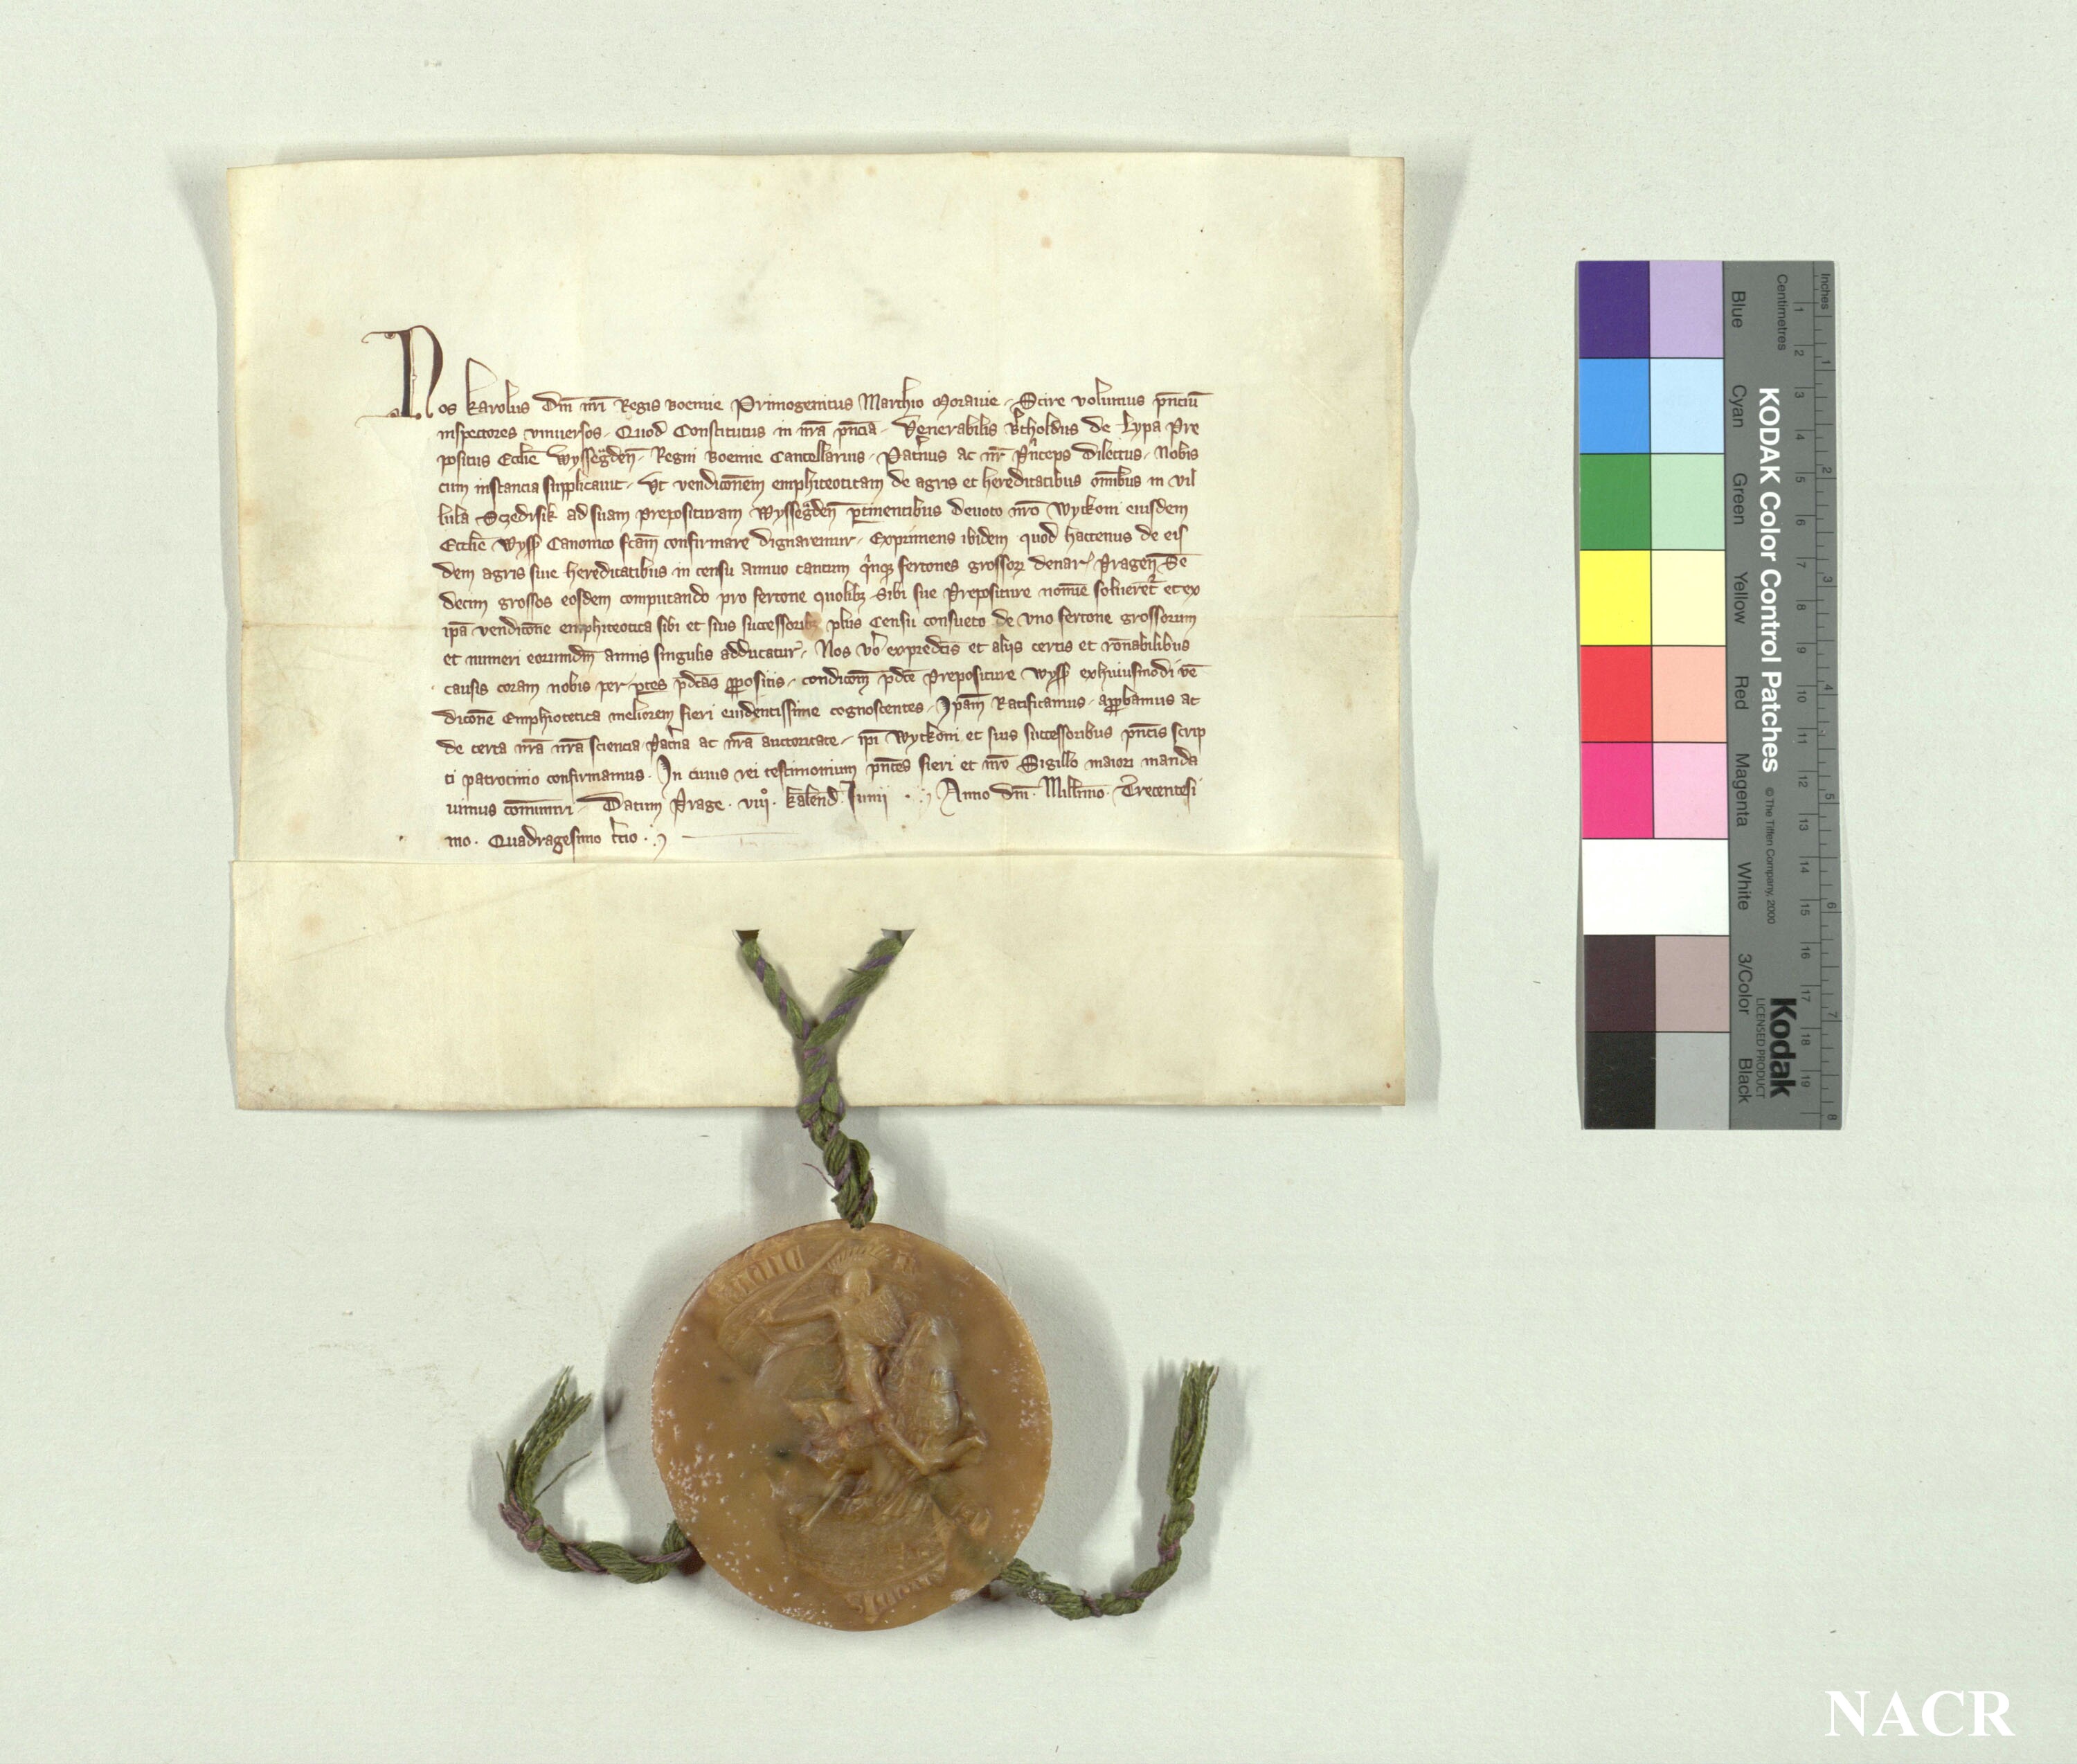 Nos Karolus dn̄i nr̄i Regis Boemie Primogenitus Marchio Morauie. Scire volumus pn̄ciū
inspectores vniuersos. Quod Constitutus in nr̄a pn̄cia. Venerabilis Btholdus de Lypa Pre
positus Eccli̅e Wyssegᵃdeṅ. Regni Boemie Cancellarius. Patnus ac nr̄ Pnceps dilectus. Nobis
cum instancia supplicauit. Vt vendicōnem emphiteoticam de agris et hereditatibus om̄ibus in vil
lula Sczedrsik ad suam preposituram Wyssegᵃdeṅ ptinentibus deuoto nr̄o Wyckoni eiusdem
Eccli̅e Wyss Canonico fcā̄m confirmare dignaremur. Exprimens ibidem quod hactenus de eis
dem agris siue hereditatibus in censu annuo tantum qinqȝ fertones grossoꝝ denar Prageṅ Se
decim grossos eosdem computando pro fertone quolibȝ sibi sue Prepositure nomīe soluerēt et ex
ipā vendicōne emphiteotica sibi et suis successoribȝ plus Censu consueto de vno fertone grossorum
et numeri eorumdm̄ annis singulis adducatur. Nos vo ex predcīs et alijs certis et rōnabilibus
causis coram nobis per ptes pdcās ꝓpositis. condicōm pdcē Prepositure Wyss exhuiusmodi vē
dicōne Emphiotetica meliorem fieri euidentissime cognoscentes. Ip̄am Ratificamus. apꝓbamus ac
de certa nr̄a nr̄a sciencia Patna ac nr̄a auctoritate. ip̄i Wyckoni et suis successoribus pn̄tis scrip
ti patrocinio confirmamus. In cuius rei testimonium pn̄tes fieri et nr̄o Sigillo maiori manda
uimus cōmuniri. Datum Prage. viijº. kalend. Iunij. Anno dn̄i. Mill̄imo. Trecentesi
mo. Quadragesimo tcio.
KODAK Color Control Patches
© The Tiffen Company, 2000
Kodak
LICENSED PRODUCT
Inches
Centimetres
1 2 3 4 5 6 7 8
1 2 3 4 5 6 7 8 9 10 11 12 13 14 15 16 17 18 19
Blue
Cyan
Green
Yellow
Red
Magenta
White
3/Color
Black
NACR